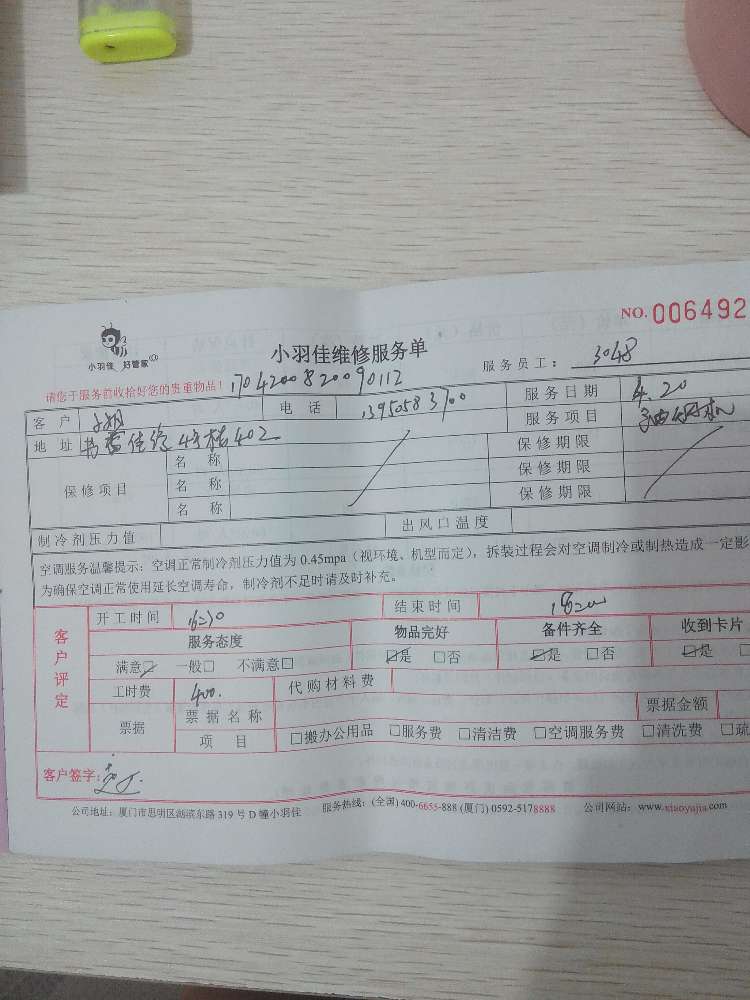 NO. 006492
小羽佳 好管家
小羽佳维修服务单
服务员工： 3048
请您于服务前收拾好您的贵重物品！ 170420082009 0112
客 户 电 话 13950583700 服务日期 4.20
地 址 4号楼402 服务项目
保修项目 名 称 保修期限
名 称 保修期限
名 称 保修期限
制冷剂压力值 出风口温度
空调服务温馨提示：空调正常制冷剂压力值为 0.45mpa（视环境、机型而定），拆装过程会对空调制冷或制热造成一定影
为确保空调正常使用延长空调寿命，制冷剂不足时请及时补充。
客户评定 开工时间 1630 结束时间 1820
服务态度 物品完好 备件齐全 收到卡片
满意□ 一般□ 不满意□ □是 □否 □是 □否 □是
工时费 400. 代购材料费
票据 票据名称 票据金额
项 目 □搬办公用品 □服务费 □清洁费 □空调服务费 □清洗费 □疏
客户签字：
公司地址：厦门市思明区湖滨东路 319 号 D 幢小羽佳 服务热线：(全国) 400-6655-888 (厦门) 0592-5178888 公司网站：www.xiaoyujia.com